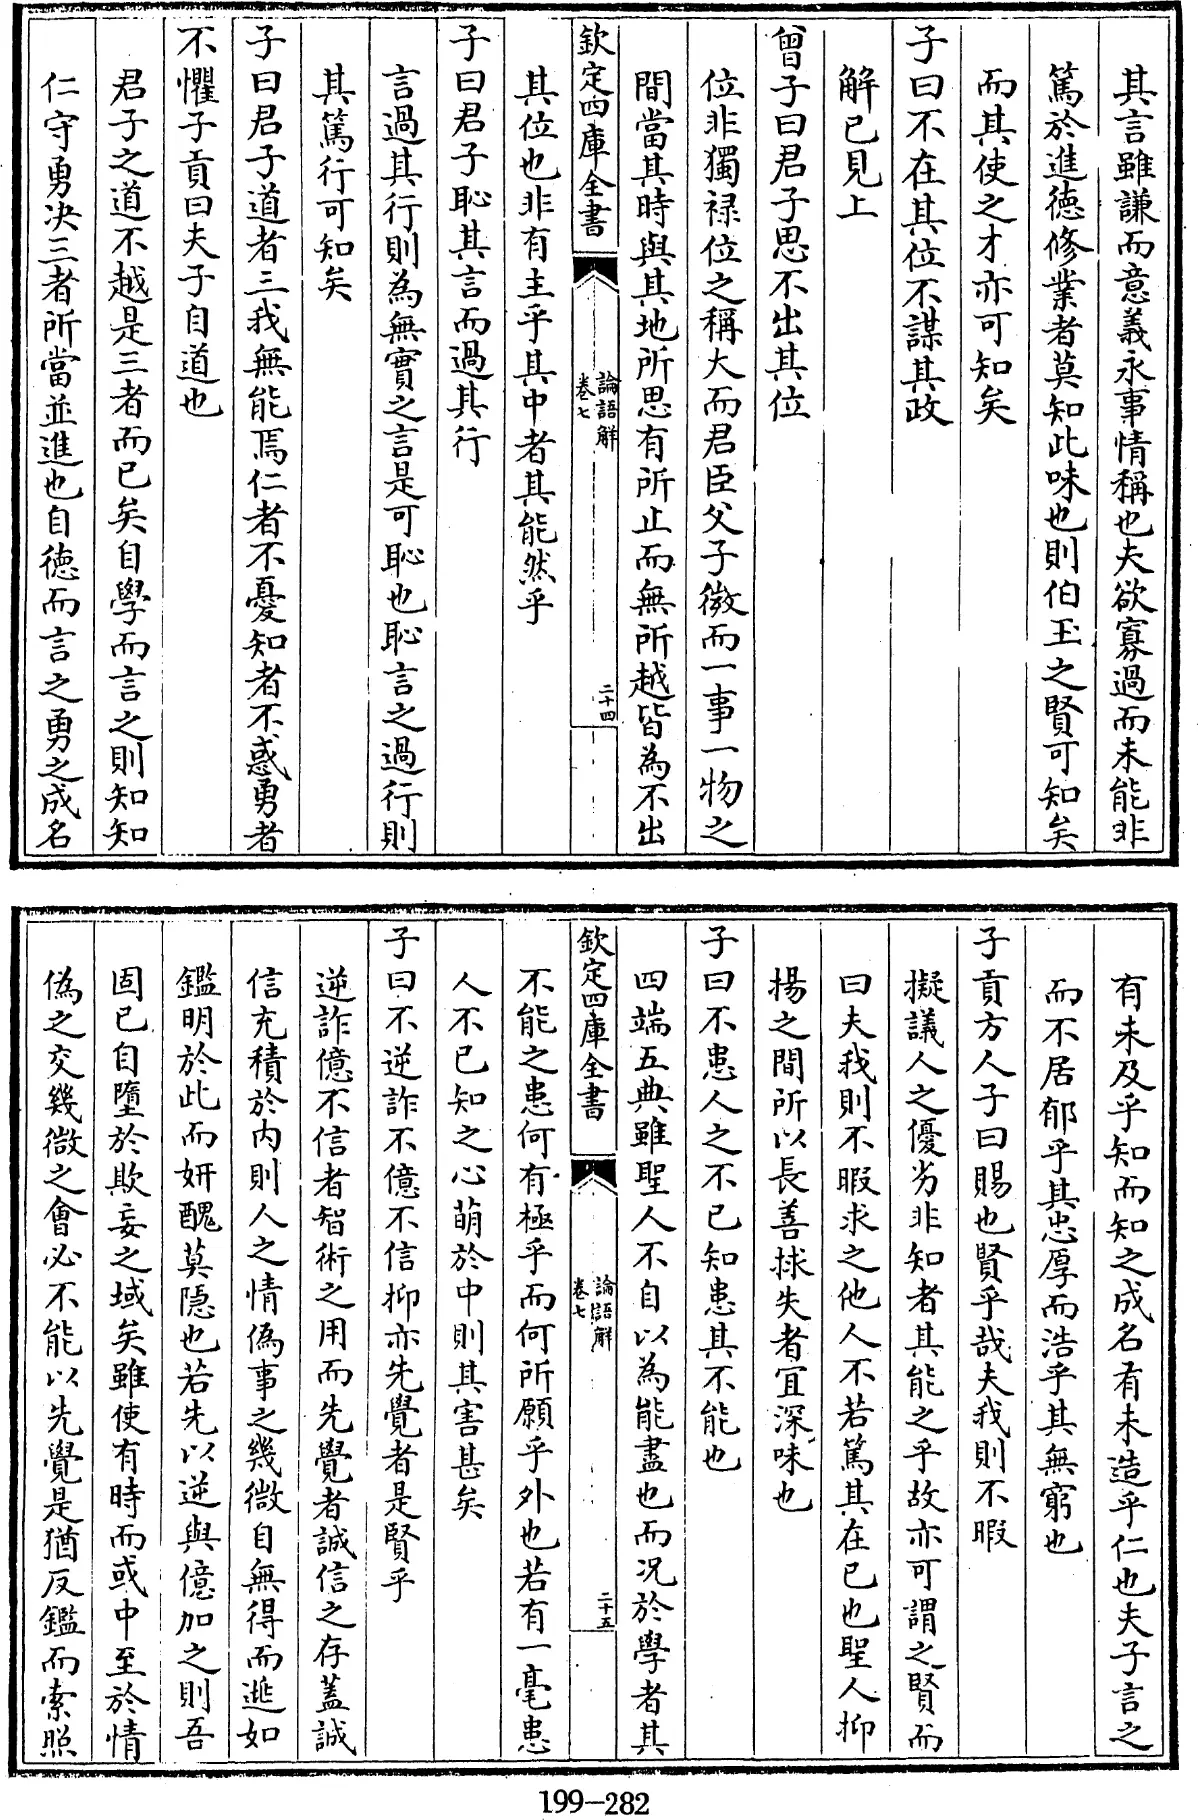 其言雖謙而意義永事情稱也夫欲寡過而未能非
篤於進德修業者莫知此味也則伯玉之賢可知矣
而其使之才亦可知矣
子曰不在其位不謀其政
解已見上
曾子曰君子思不出其位
位非獨祿位之稱大而君臣父子微而一事一物之
間當其時與其地所思有所止而無所越皆為不出
欽定四庫全書
論語解
卷七
二十四
其位也非有主乎其中者其能然乎
子曰君子恥其言而過其行
言過其行則為無實之言是可恥也恥言之過行則
其篤行可知矣
子曰君子道者三我無能焉仁者不憂知者不惑勇者
不懼子貢曰夫子自道也
君子之道不越是三者而已矣自學而言之則知知
仁守勇決三者所當並進也自德而言之勇之成名
有未及乎知而知之成名有未造乎仁也夫子言之
而不居郁乎其忠厚而浩乎其無窮也
子貢方人子曰賜也賢乎哉夫我則不暇
擬議人之優劣非知者其能之乎故亦可謂之賢而
曰夫我則不暇求之他人不若篤其在已也聖人抑
揚之間所以長善捄失者宜深味也
子曰不患人之不已知患其不能也
四端五典雖聖人不自以為能盡也而况於學者其
欽定四庫全書
論語解
卷七
二十五
不能之患何有極乎而何所願乎外也若有一毫患
人不已知之心萌於中則其害甚矣
子曰不逆詐不億不信抑亦先覺者是賢乎
逆詐億不信者智術之用而先覺者誠信之存蓋誠
信充積於内則人之情偽事之幾微自無得而遁如
鑑明於此而妍醜莫隱也若先以逆與億加之則吾
固已自墮於欺妄之域矣雖使有時而或中至於情
偽之交幾微之會必不能以先覺是猶反鑑而索照
199-282